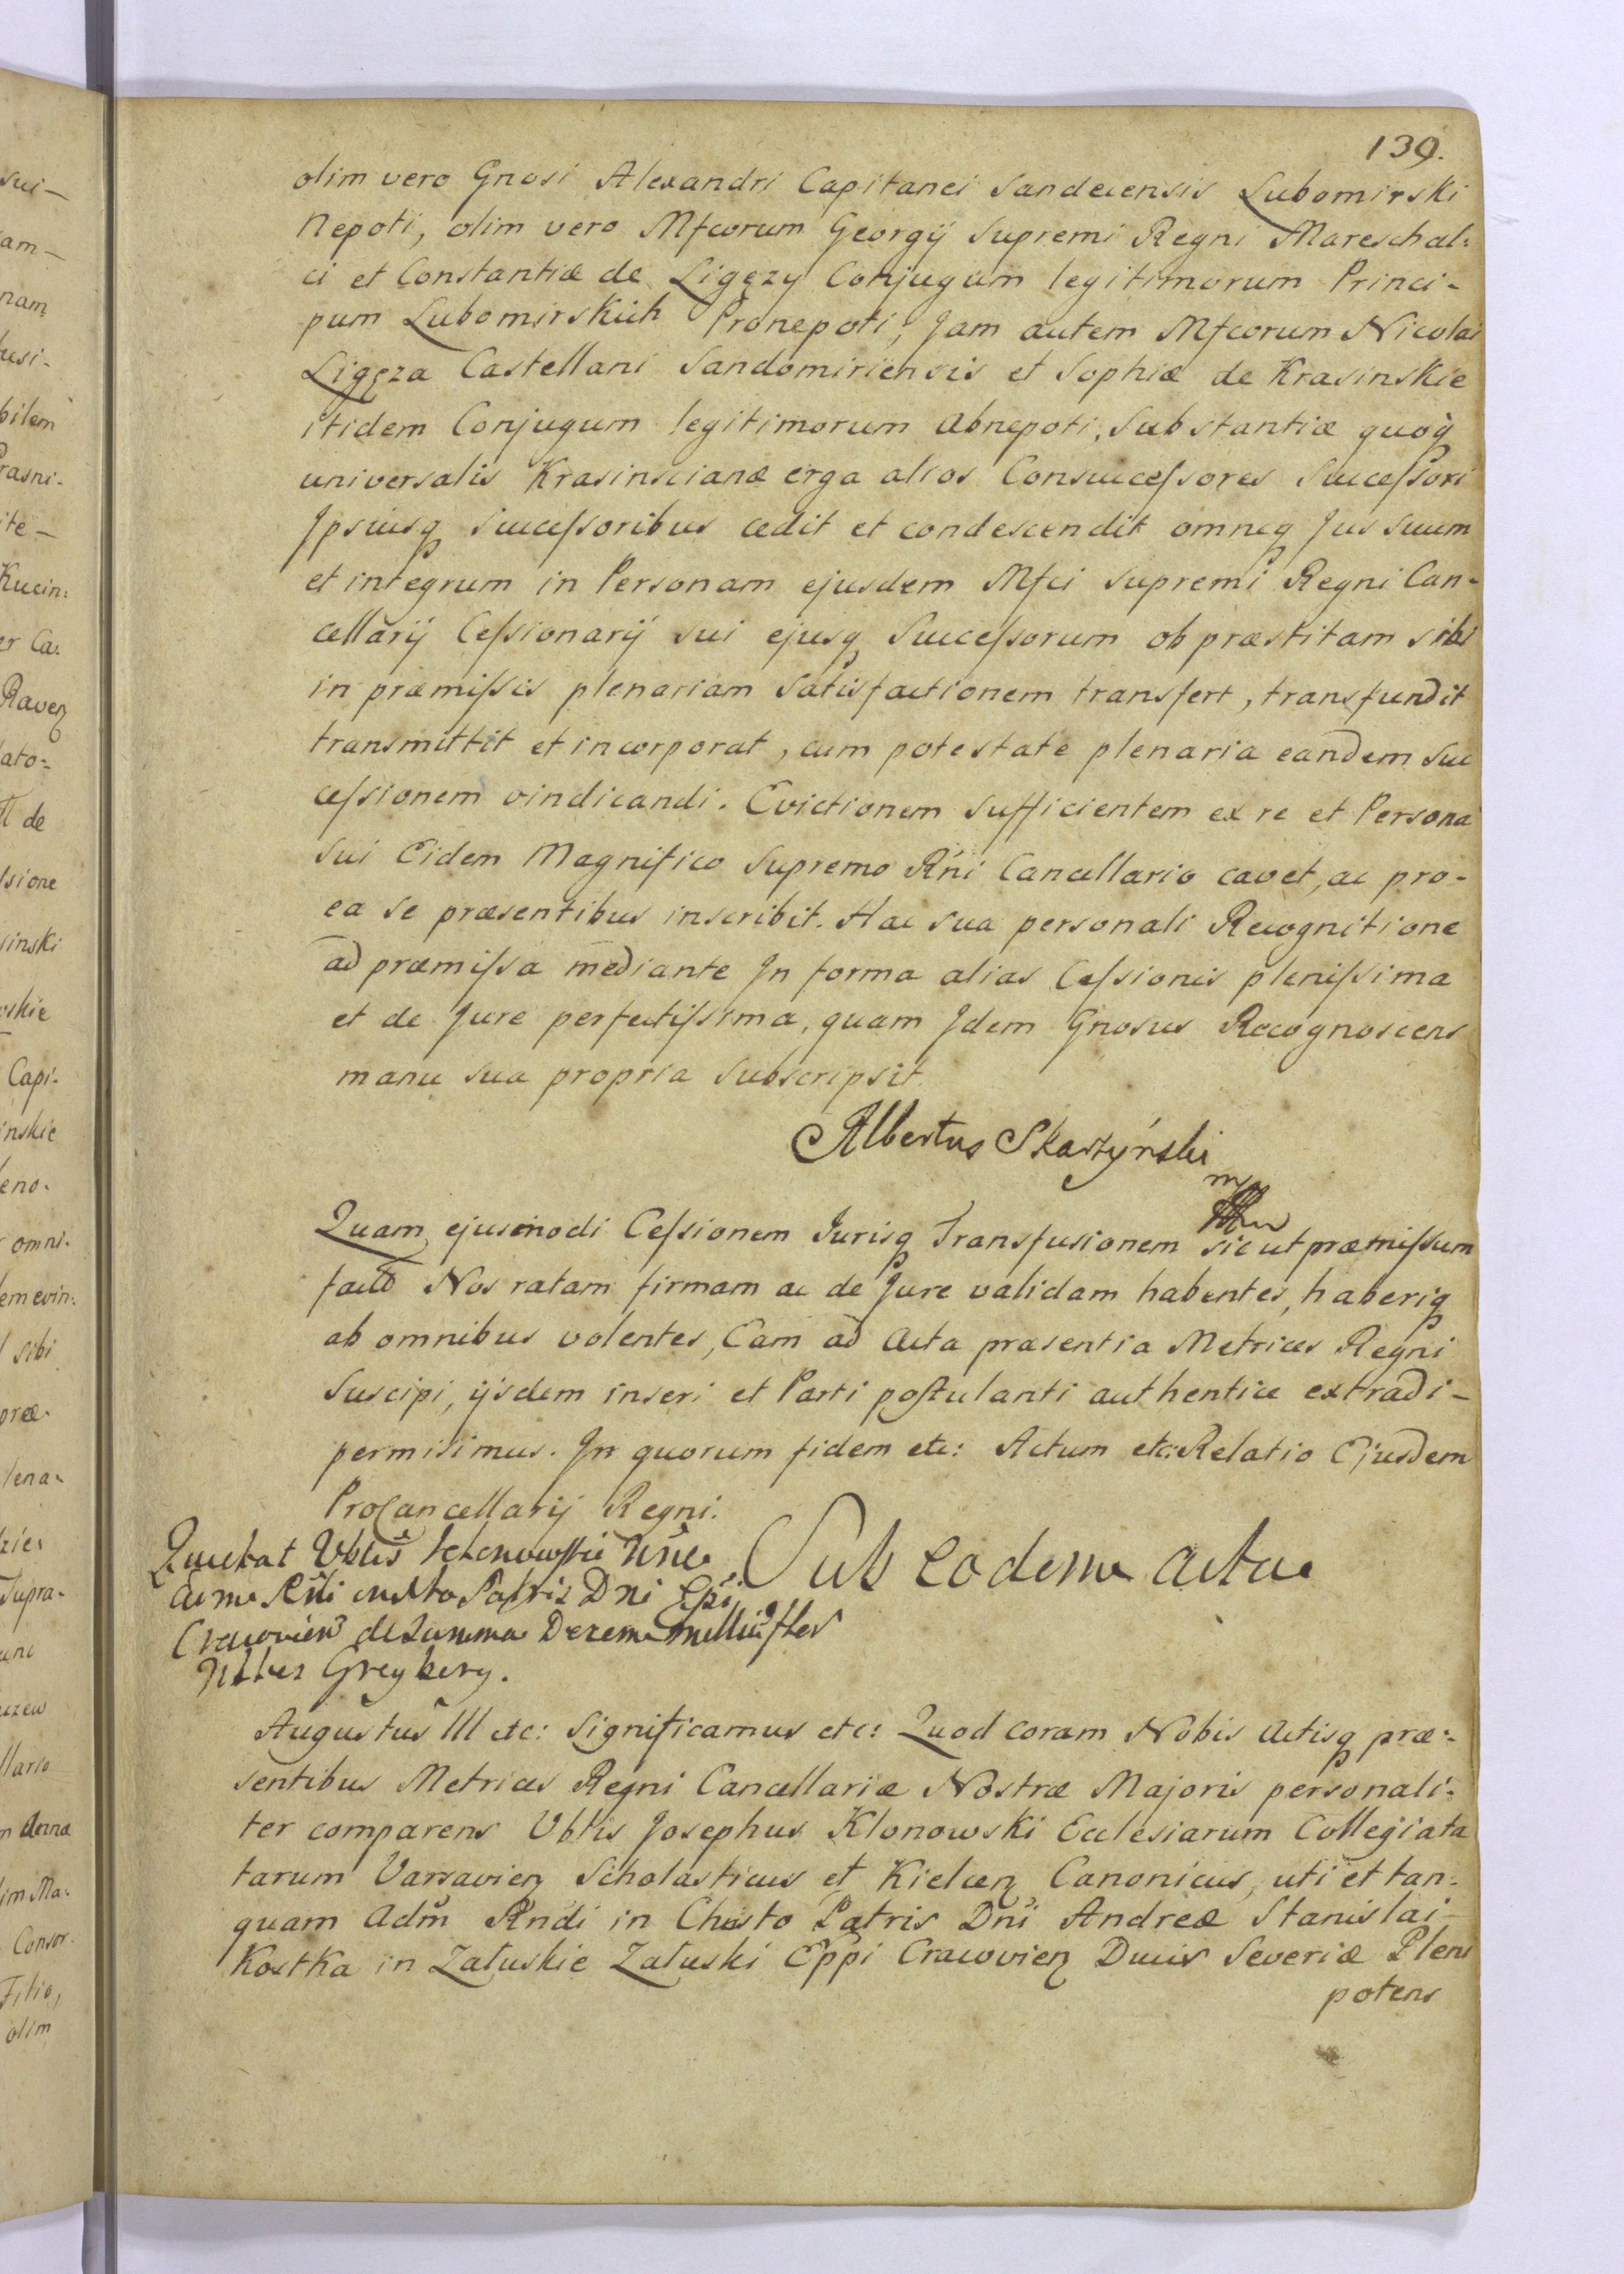 139.
olim vero Gnosi Alexandri Capitanei Sandecensis Lubomirski
Nepoti, olim vero Mfcorum Georgij Supremi Regni Mareschal:
ci et Constantiæ de Ligęzy Conjugum legitimorum Princi-
pum Lubomirskich Pronepoti, Jam autem Mfcorum Nicolai
Ligęza Castellani Sandomiriensis et Sophiæ de Krasinskie
itidem Conjugum legitimorum Abnepoti, Substantiæ quoq
universalis Krasinscianæ erga alios Consuccessores Successori
Jpsiusq Successoribus cedit et condescendit omneq Jus suum
et integrum in Personam ejusdem Mfci Supremi Regni Can-
cellarij Cessionarij sui ejusq Successorum ob præstitam sibi
in præmissis plenariam satisfactionem transfert, transfundit
transmittit et incorporat, cum potestate plenaria eandem Suc
cessionem vindicandi. Evictionem sufficientem ex re et Persona
sui Eidem Magnifico Supremo Rni Cancellario cavet, ac pro-
ea se præsentibus inscribit. Hac sua personali Recognitione
ad præmissa mediante Jn forma alias Cessionis plenissima
et de Jure perfectissima, quam Jdem Gnosus Recognoscens
manu sua propria subscripsit.
Albertus Skarzyński
mp
Quam ejusmodi Cessionem Jurisq Transfusionem sic ut præmissum
factã Nos ratam firmam ac de Jure validam habentes, haberiq
ab omnibus volentes, Eam ad Acta præsentia Metrices Regni
Suscipi, ijsdem inseri et Parti postulanti authentice extradi-
permisimus. Jn quorum fidem etc: Actum etc: Relatio Ejusdem
ProCancellarij Regni.
Quietat Vblis Klonowski Nñe
Sub eodem actu
Patris Dni Eppi
Cracovien de Summa Decem millia
Greybery.
Augustus III etc: Significamus etc: Quod coram Nobis Actisq præ:
sentibus Metrices Regni Cancellariæ Nostræ Majoris personali:
ter comparens Vblis Josephus Klonowski Ecclesiarum Collegiata
tarum Varsavien Scholasticus et Kielcen Canonicus, uti et tan:
quam Adm Rndi in Christo Patris Dni Andreæ Stanislai
Kostka in Załuskie Załuski Eppi Cracovien Ducis Severiæ Pleni
potens